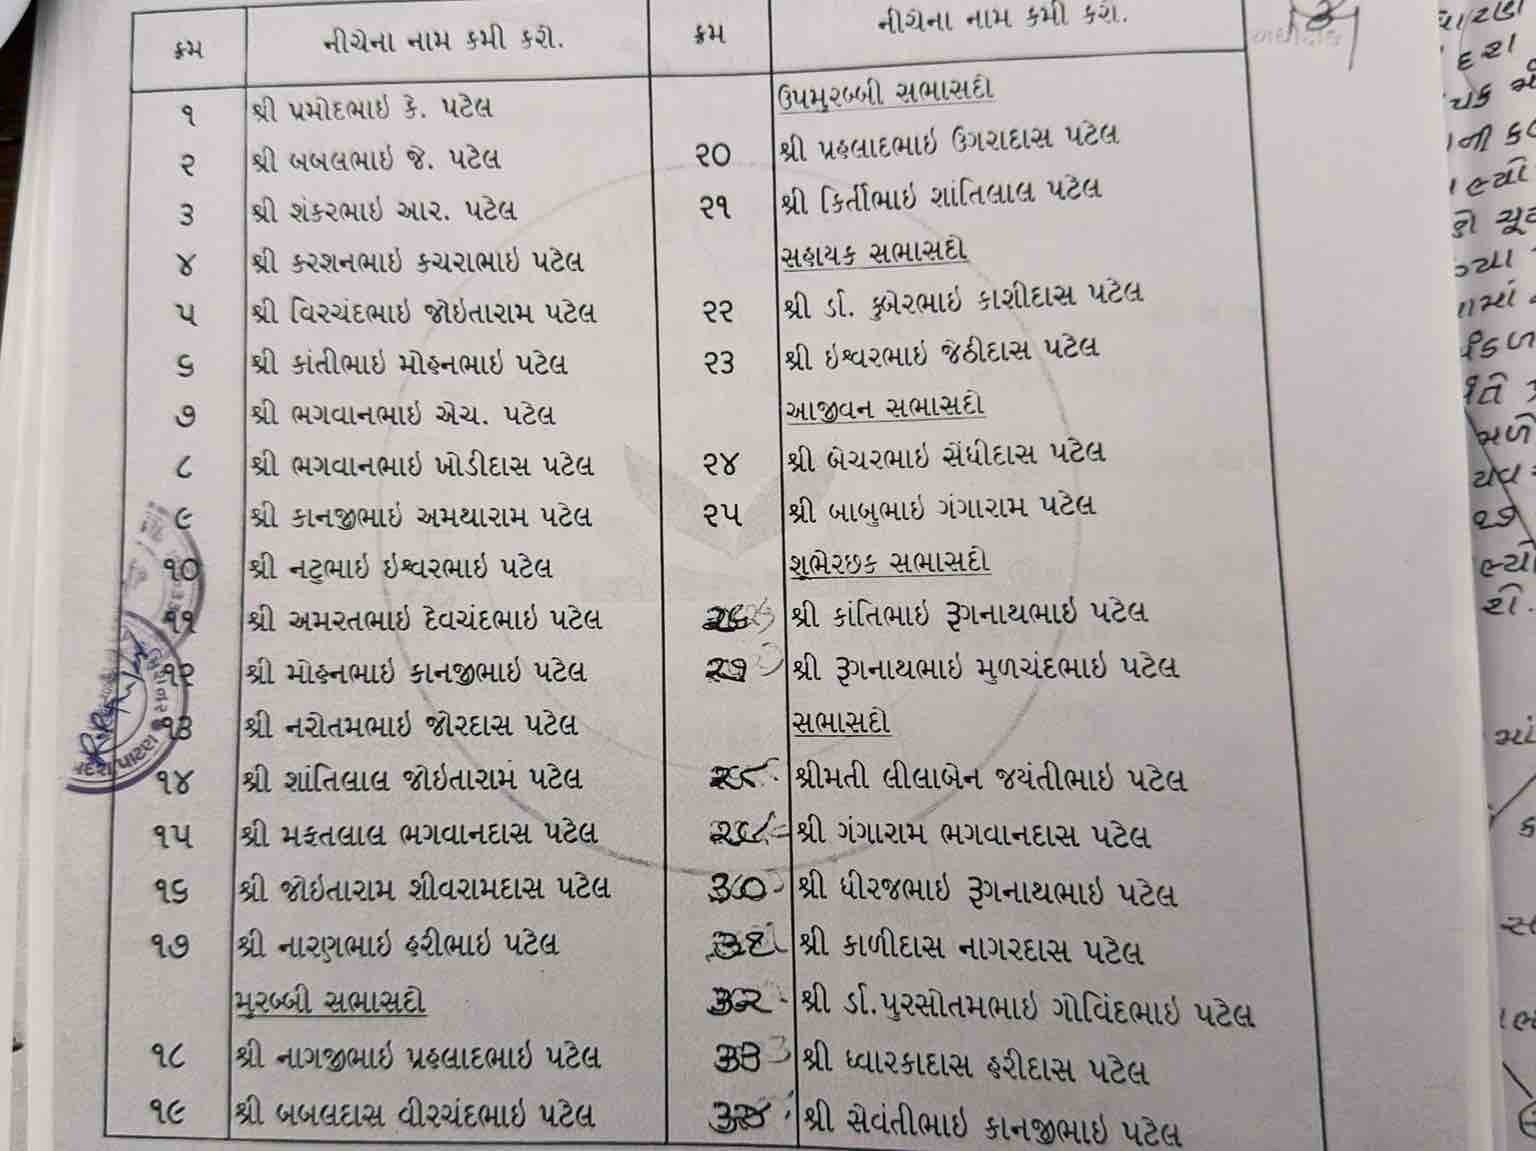 ક્રમ
નીચેના નામ કમી કરો.
૧ શ્રી પ્રમોદભાઇ કે. પટેલ
૨ શ્રી બબલભાઇ જે. પટેલ
૩ શ્રી શંકરભાઇ આર. પટેલ
૪ શ્રી કરશનભાઇ કચરાભાઇ પટેલ
૫ શ્રી વિરચંદભાઇ જોઇતારામ પટેલ
૬ શ્રી કાંતીભાઇ મોહનભાઇ પટેલ
૭ શ્રી ભગવાનભાઇ એચ. પટેલ
૮ શ્રી ભગવાનભાઇ ખોડીદાસ પટેલ
૯ શ્રી કાનજીભાઇ અમથારામ પટેલ
૧૦ શ્રી નટુભાઇ ઇશ્વરભાઇ પટેલ
૧૧ શ્રી અમરતભાઇ દેવચંદભાઇ પટેલ
૧૨ શ્રી મોહનભાઇ કાનજીભાઇ પટેલ
૧૩ શ્રી નરોતમભાઇ જોરદાસ પટેલ
૧૪ શ્રી શાંતિલાલ જોઇતારામ પટેલ
૧૫ શ્રી મફતલાલ ભગવાનદાસ પટેલ
૧૬ શ્રી જોઇતારામ શીવરામદાસ પટેલ
૧૭ શ્રી નારણભાઇ હરીભાઇ પટેલ
મુરબ્બી સભાસદો
૧૮ શ્રી નાગજીભાઇ પ્રહલાદભાઇ પટેલ
૧૯ શ્રી બબલદાસ વીરચંદભાઇ પટેલ
ક્રમ
નીચેના નામ કમી કરો.
ઉપમુરબ્બી સભાસદો
૨૦ શ્રી પ્રહલાદભાઇ ઉગરાદાસ પટેલ
૨૧ શ્રી કિર્તીભાઇ શાંતિલાલ પટેલ
સહાયક સભાસદો
૨૨ શ્રી ર્ડા. કુબેરભાઇ કાશીદાસ પટેલ
૨૩ શ્રી ઇશ્વરભાઇ જેઠીદાસ પટેલ
આજીવન સભાસદો
૨૪ શ્રી બેચરભાઇ સેંધીદાસ પટેલ
૨૫ શ્રી બાબુભાઇ ગંગારામ પટેલ
શુભેરછક સભાસદો
૨૬ શ્રી કાંતિભાઇ રૂગનાથભાઇ પટેલ
૨૭ શ્રી રૂગનાથભાઇ મુળચંદભાઇ પટેલ
સભાસદો
૨૮ શ્રીમતી લીલાબેન જયંતીભાઇ પટેલ
૨૯ શ્રી ગંગારામ ભગવાનદાસ પટેલ
૩૦ શ્રી ધીરજભાઇ રૂગનાથભાઇ પટેલ
૩૧ શ્રી કાળીદાસ નાગરદાસ પટેલ
૩૨ શ્રી ર્ડા.પુરસોતમભાઇ ગોવિંદભાઇ પટેલ
૩૩ શ્રી ધ્વારકાદાસ હરીદાસ પટેલ
૩૪ શ્રી સેવંતીભાઇ કાનજીભાઇ પટેલ